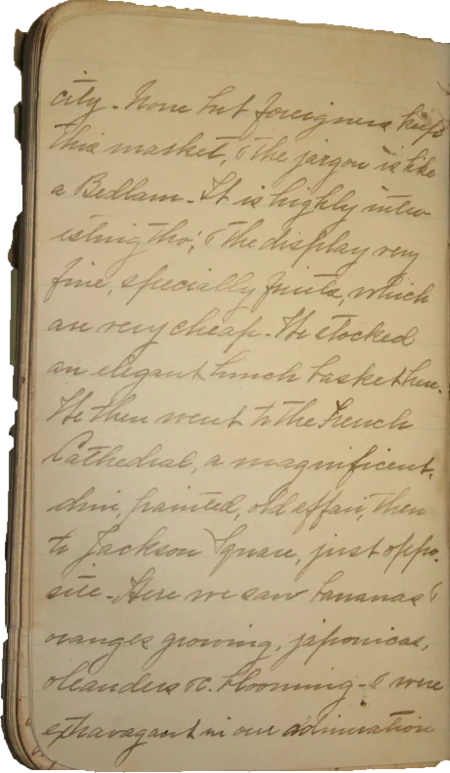 city - None but foreigners keep
this market, & the jargon is like
a Bedlam - It is highly inter
esting tho', & the display very
fine, specially fruits, which
are very cheap - We stocked
an elegant lunch basket here -
We then went to the French
Cathedral, a magnificent,
dim, painted, old affair, then
to Jackson Square, just oppo-
site - Here we saw bananas &
oranges growing, japonicas,
oleanders &c. blooming - & were
extravagant in our admiration